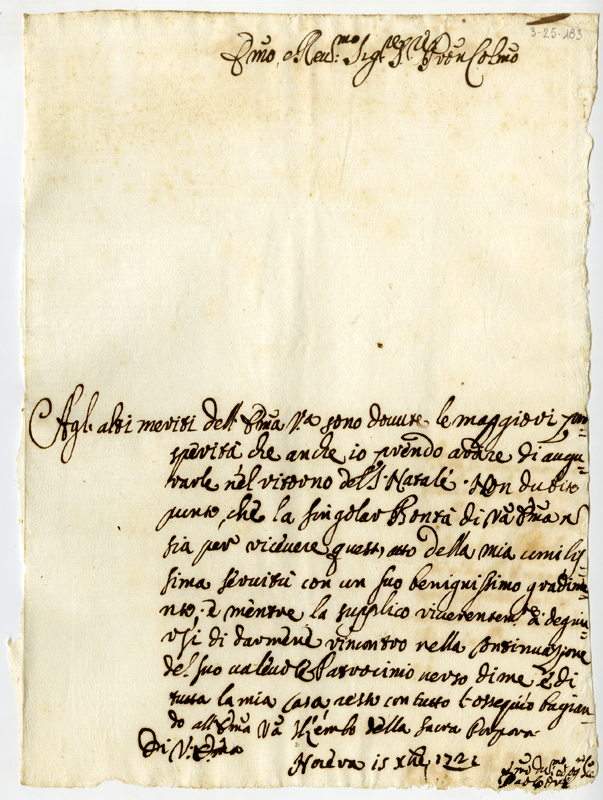 3-25-183
Emo, e Reu:mo Sigre Pron Colmo
Agl' alti meriti dell' Emza Va sono douute le maggiori pro=
sperità che anche io prendo ardire di augu=
rarle nel ritorno del S. Natale. Non dubito
punto, che la singolar Bontà di Va Emza n
sia per riceuere quest' atto della mia umilis=
sima seruitù con un suo benignissimo gradime=
nto; e mentre la supplico riuerentemte. di degnar=
si di darmene rincontro nella continuazione
del suo ualeuole Patrocinio uerso di me, e di
tutta la mia Casa resto con tutto l'ossequio bagian=
do all' Emza Va il lembo della sacra Porpora.
Di V. Emza
15 Xbre 1721